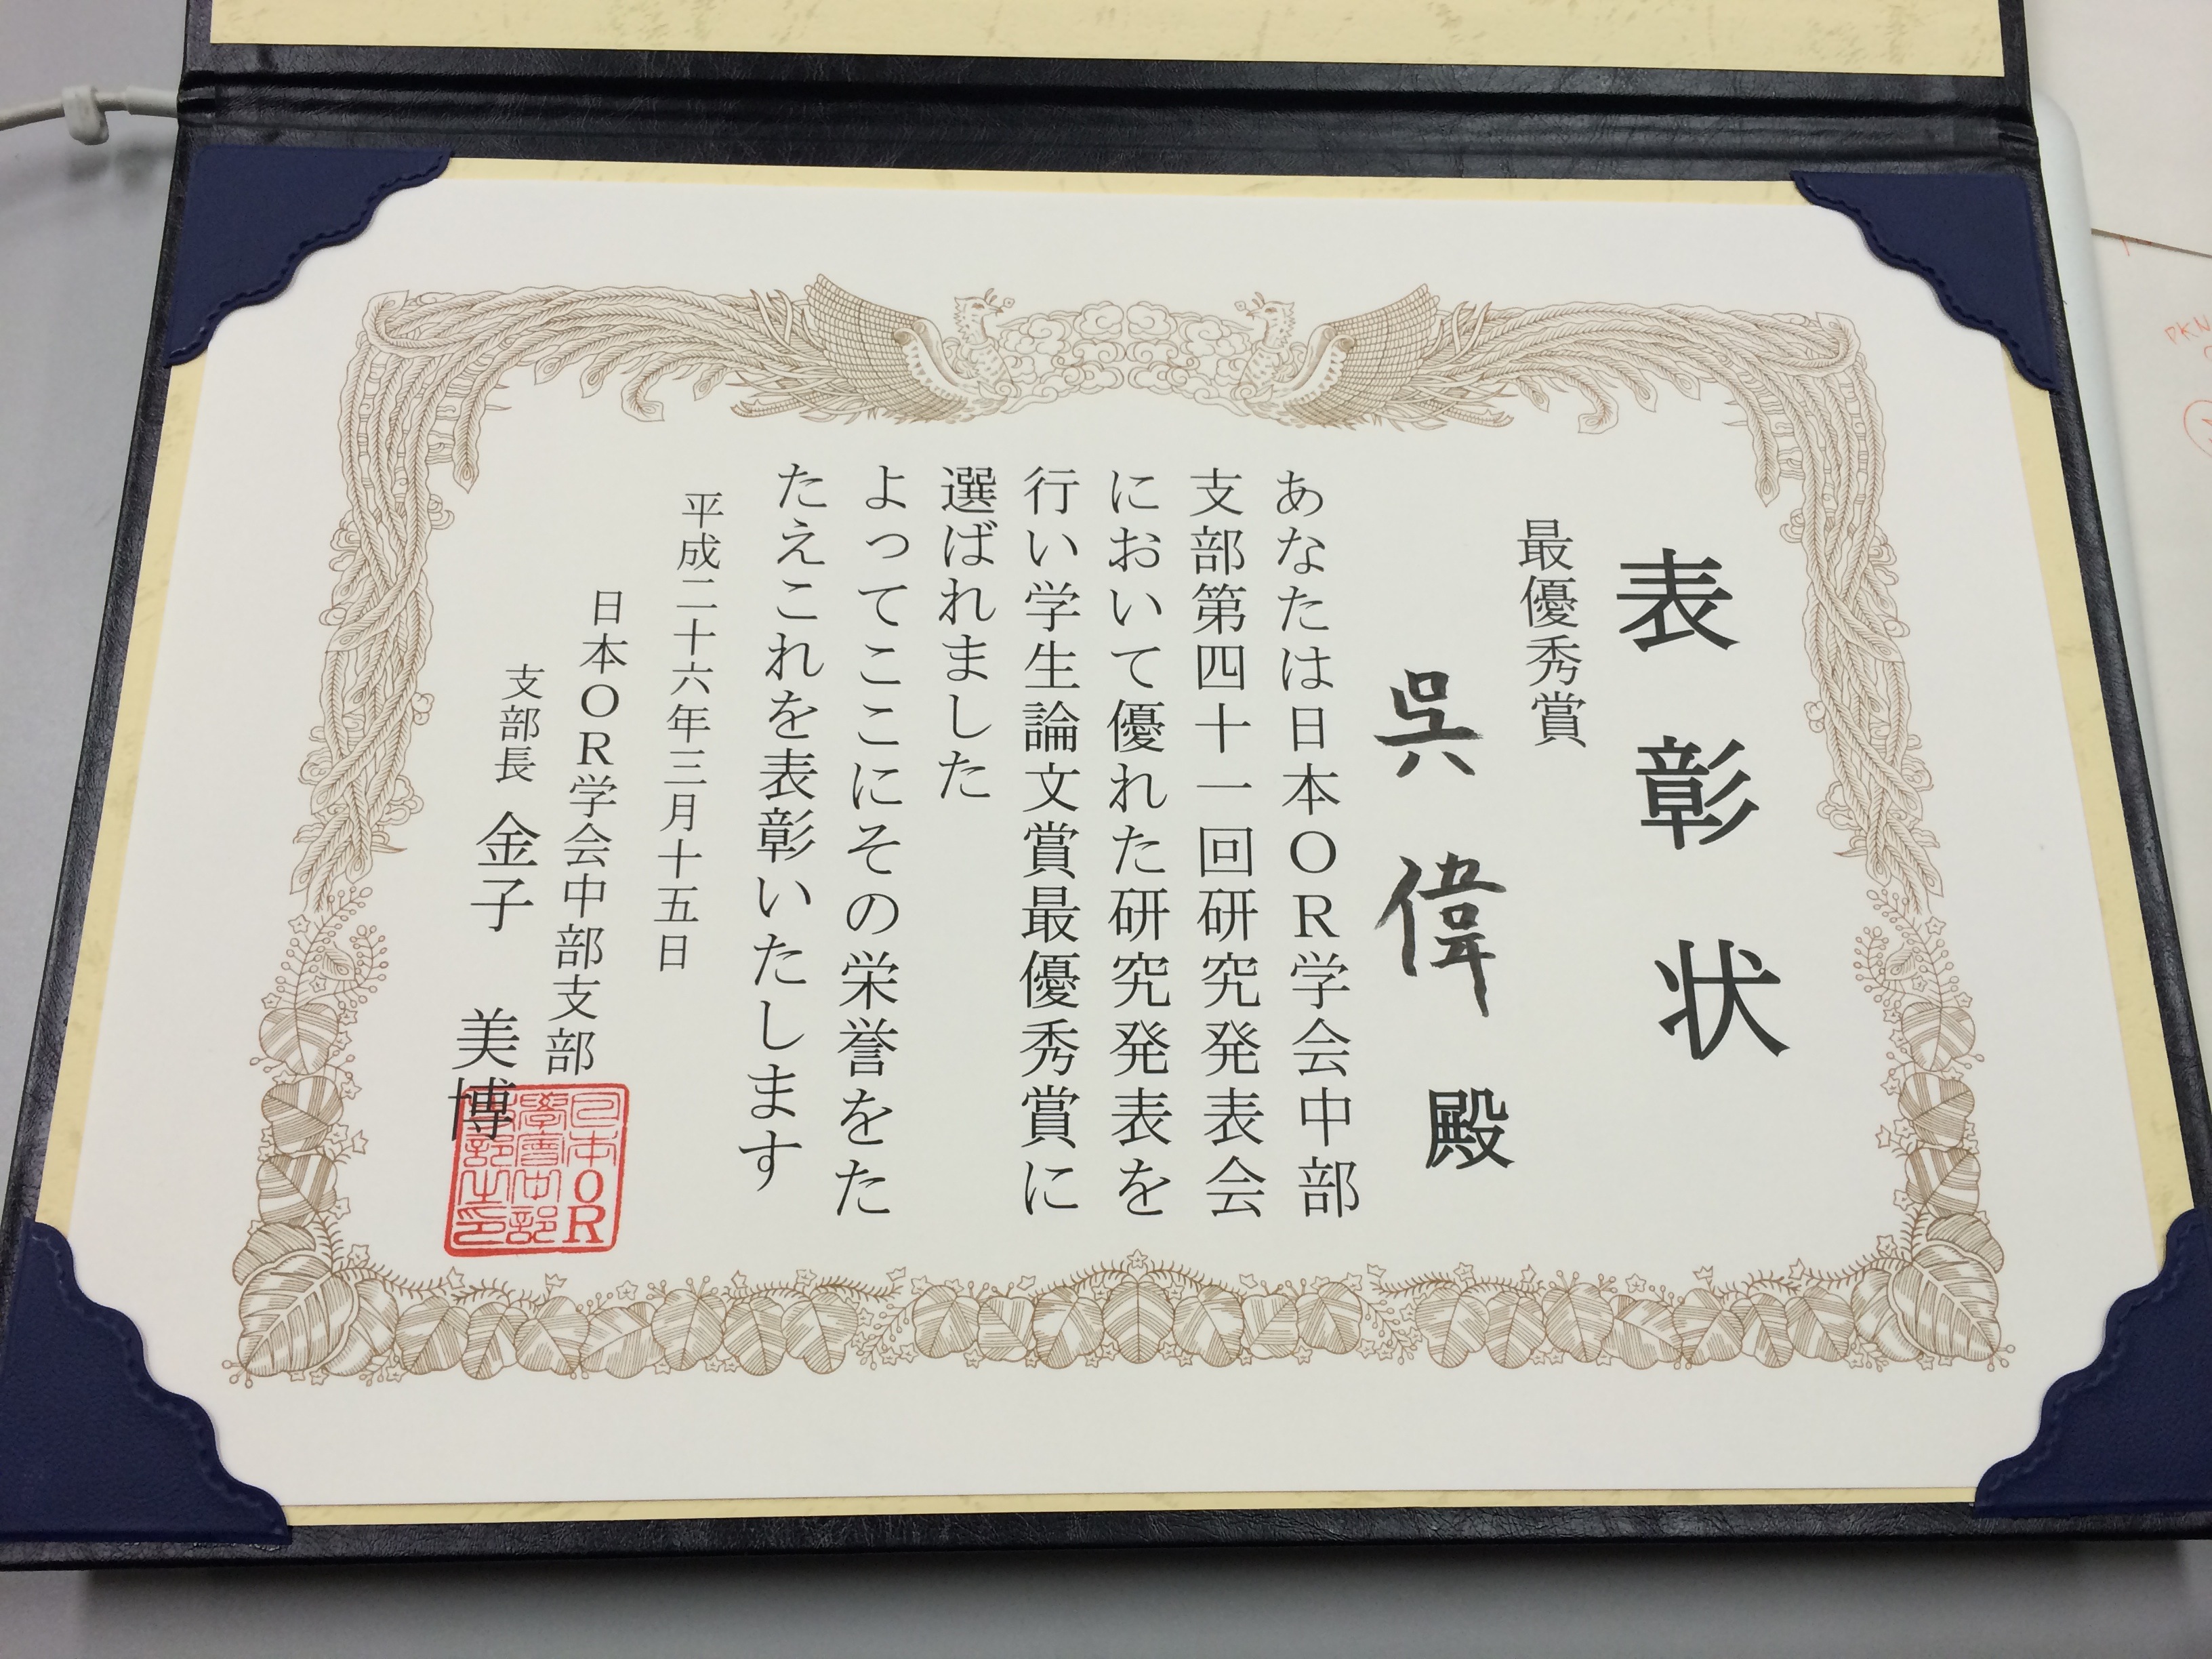 表彰状
最優秀賞
呉偉殿
あなたは日本OR学会中部
支部第四十一回研究発表会
において優れた研究発表を
行い学生論文賞最優秀賞に
選ばれました
よってここにその栄誉をた
たえこれを表彰いたします
平成二十六年三月十五日
日本OR学会中部支部
支部長 金子 美博
日本OR
學會中部
支部之印